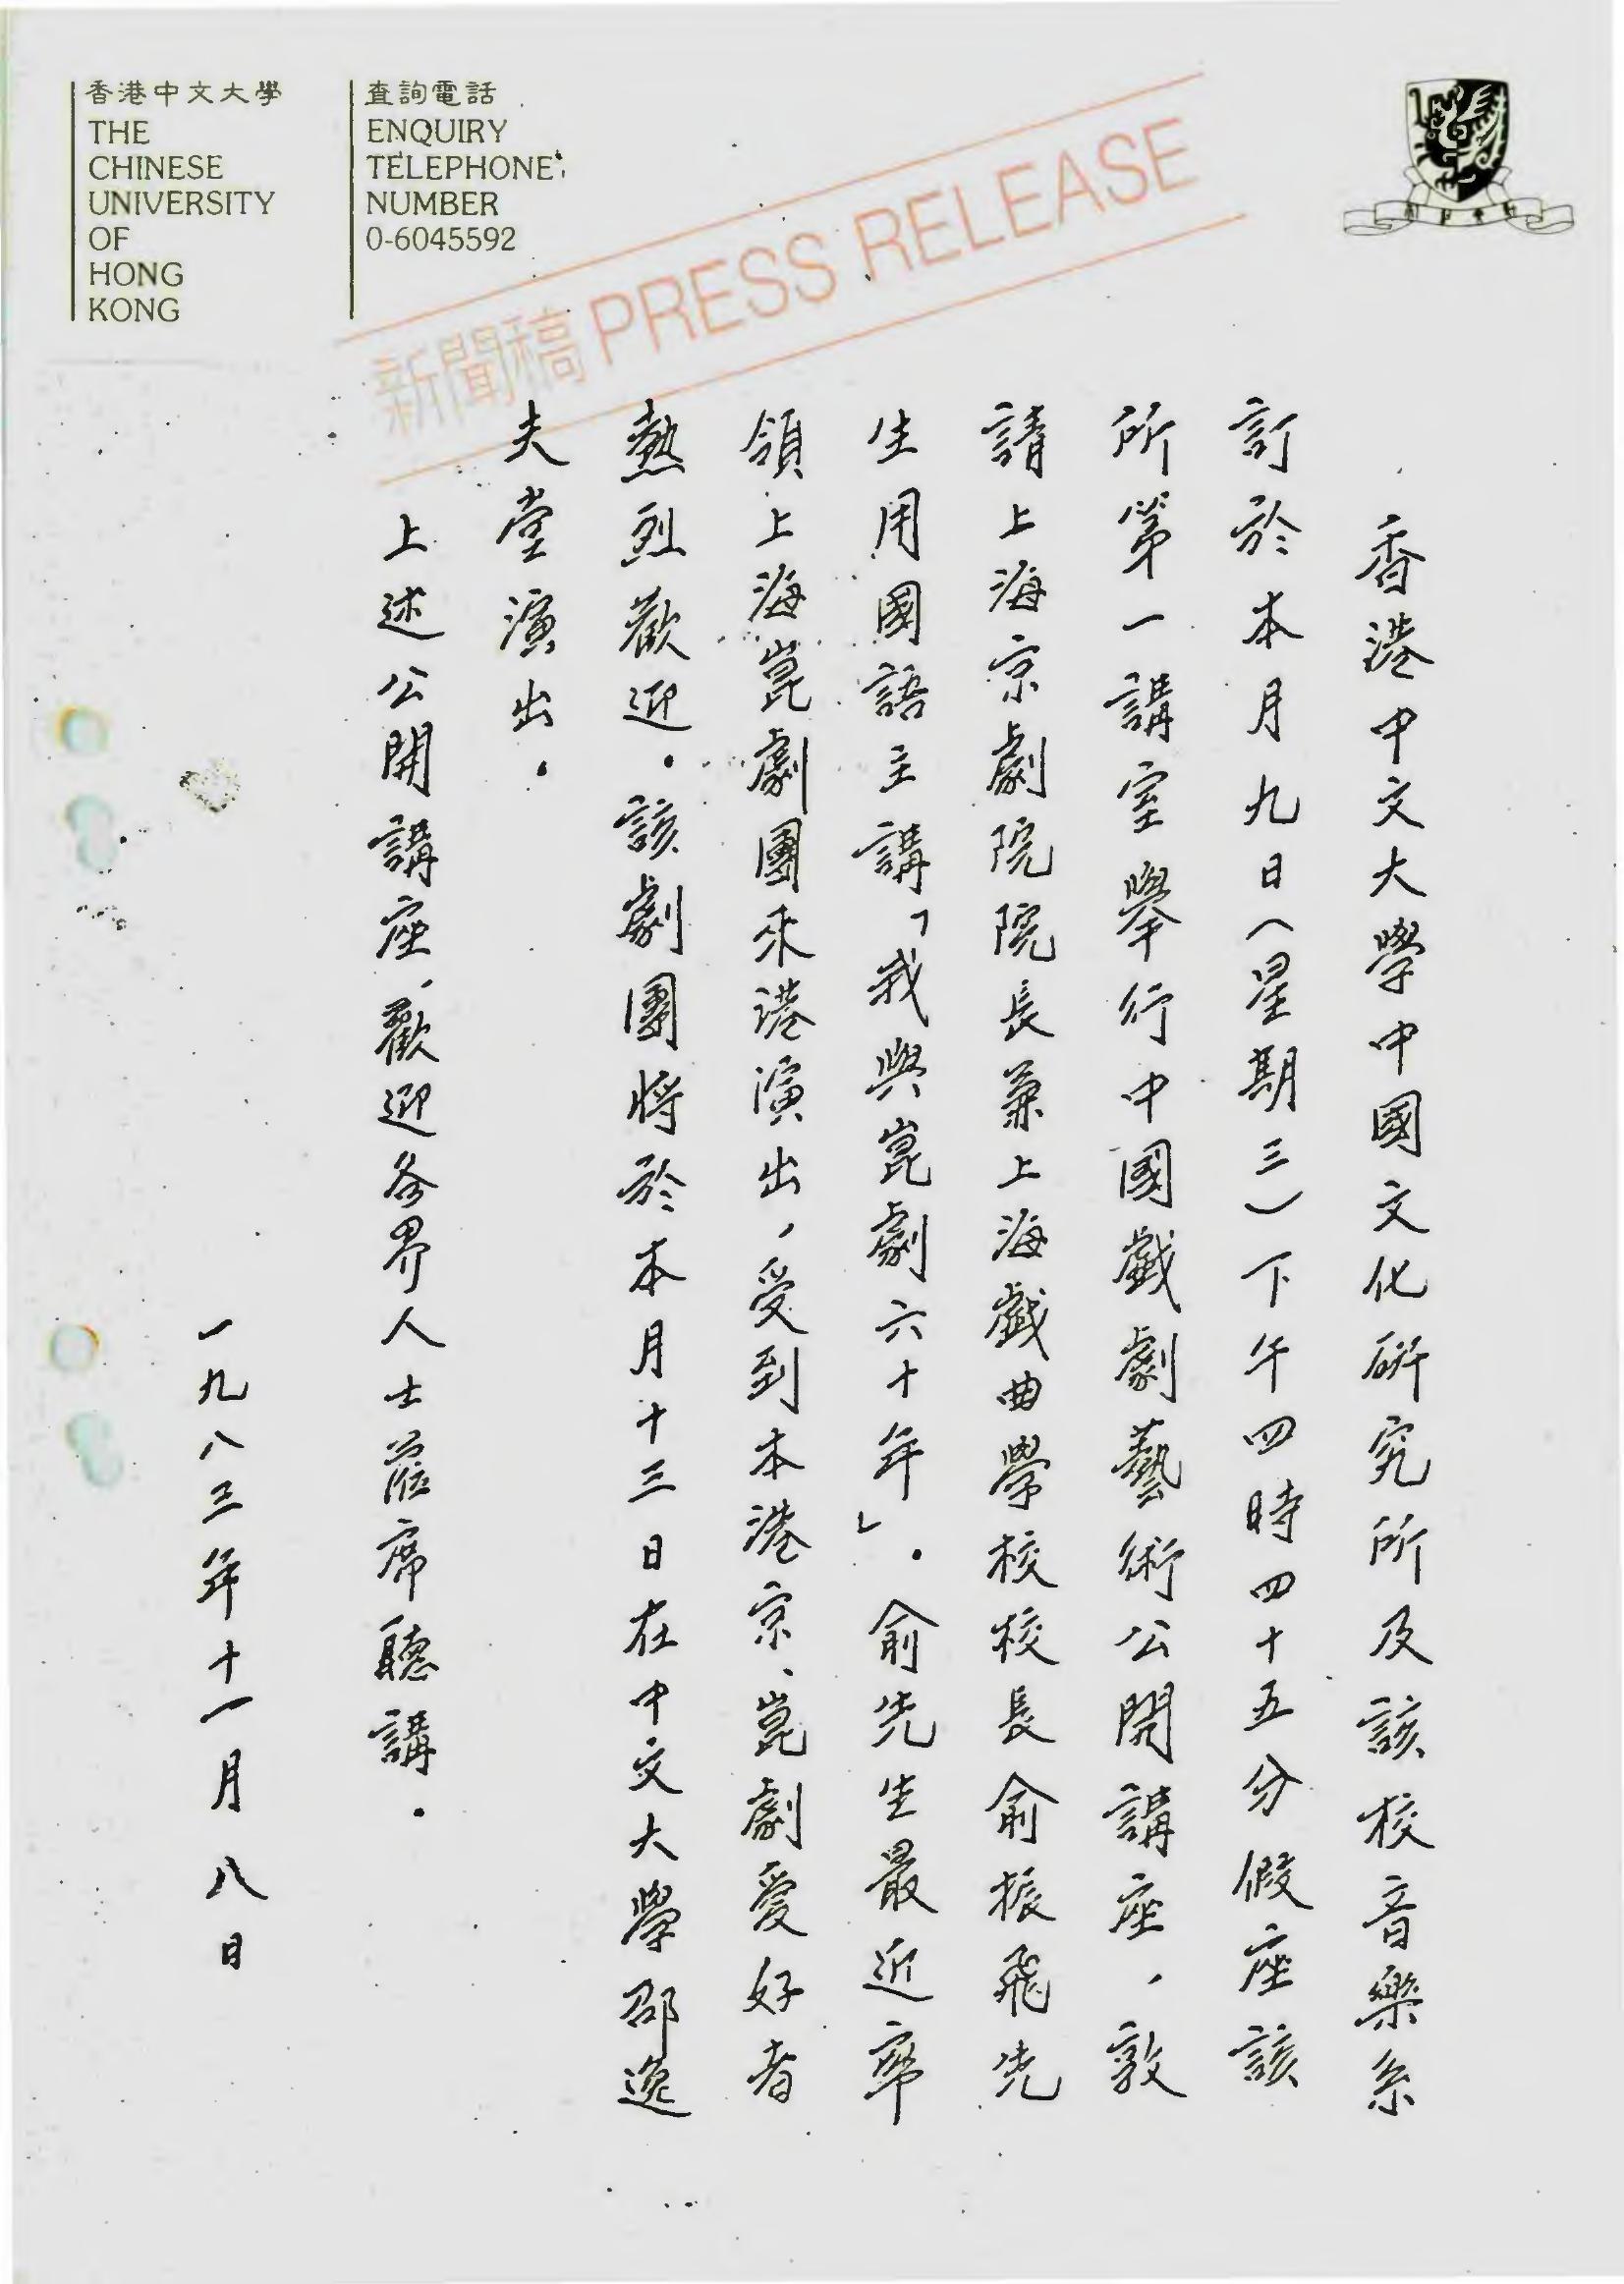 香港中文大學
THE
CHINESE
UNIVERSITY
OF
HONG
KONG
查詢電話
ENQUIRY
TELEPHONE
NUMBER
0-6045592
新聞稿 PRESS RELEASE
香港中文大學中國文化研究所及該校音樂系
訂於本月九日(星期三)下午四時四十五分假座該
所第一講室舉行中國戲劇藝術公開講座,敦
請上海京劇院院長兼上海戲曲學校校長俞振飛先
生用國語主講「我與崑劇六十年」.俞先生最近率
領上海崑劇團來港演出,受到本港京、崑劇愛好者
熱烈歡迎.該劇團將於本月十三日在中文大學邵逸
夫堂演出.
上述公開講座,歡迎各界人士蒞席聽講.
一九八三年十一月八日